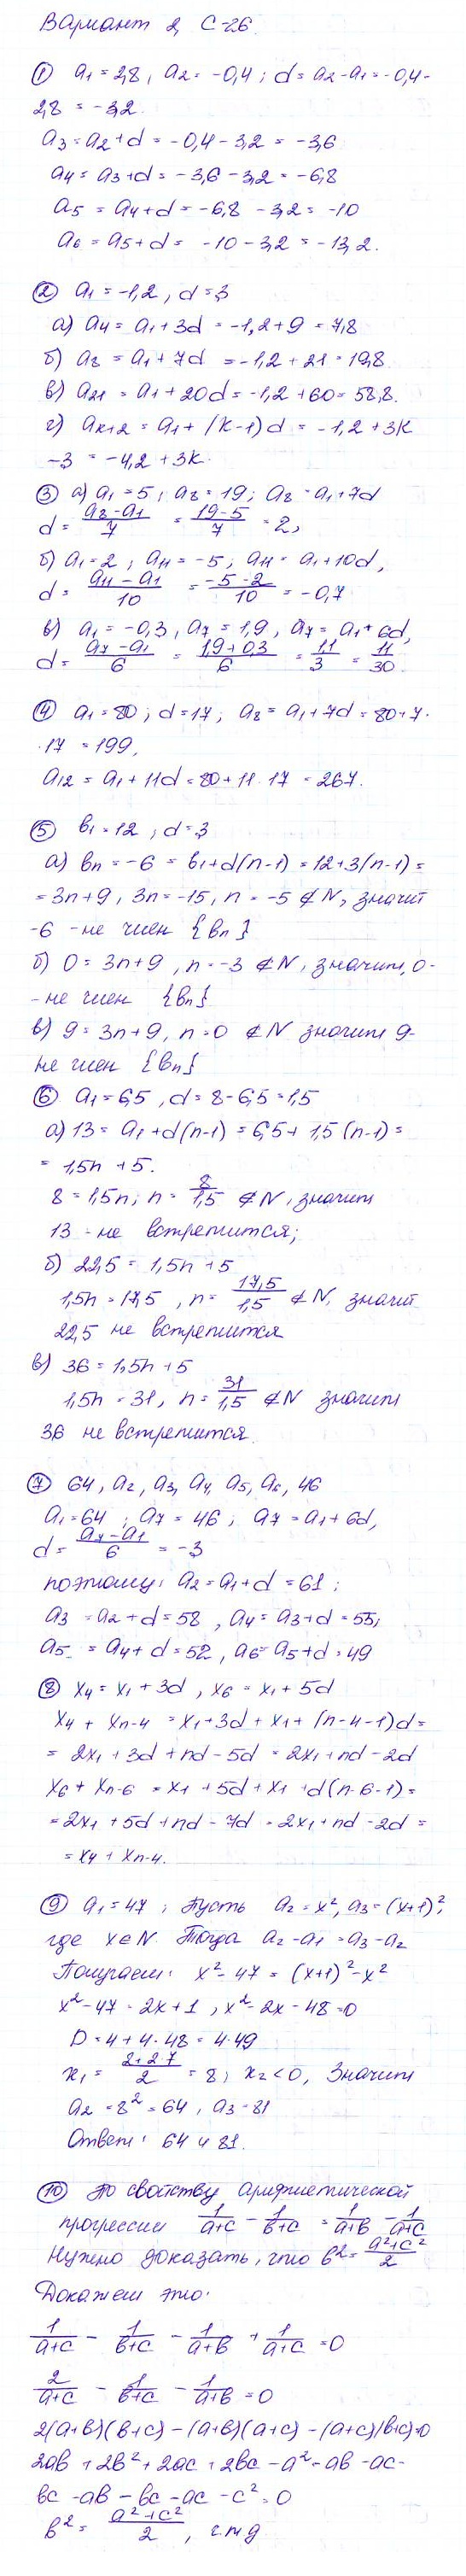 Вариант 2, С-26.
① a₁ = 2,8, a₂ = -0,4; d = a₂ - a₁ = -0,4 -
2,8 = -3,2.
a₃ = a₂ + d = -0,4 - 3,2 = -3,6
a₄ = a₃ + d = -3,6 - 3,2 = -6,8
a₅ = a₄ + d = -6,8 - 3,2 = -10
a₆ = a₅ + d = -10 - 3,2 = -13,2.
② a₁ = -1,2, d = 3
а) a₄ = a₁ + 3d = -1,2 + 9 = 7,8
б) a₈ = a₁ + 7d = -1,2 + 21 = 19,8
в) a₂₁ = a₁ + 20d = -1,2 + 60 = 58,8.
г) aₖ₊₂ = a₁ + (k-1)d = -1,2 + 3k
-3 = -4,2 + 3k.
③ а) a₁ = 5; a₈ = 19; a₈ = a₁ + 7d
d = (a₈ - a₁)/7 = (19 - 5)/7 = 2,
б) a₁ = 2, a₁₁ = -5; a₁₁ = a₁ + 10d,
d = (a₁₁ - a₁)/10 = (-5 - 2)/10 = -0,7
в) a₁ = -0,3, a₇ = 1,9, a₇ = a₁ + 6d,
d = (a₇ - a₁)/6 = (1,9 + 0,3)/6 = 1,1/3 = 11/30
④ a₁ = 80; d = 17; a₈ = a₁ + 7d = 80 + 7·
·17 = 199,
a₁₂ = a₁ + 11d = 80 + 11·17 = 267.
⑤ b₁ = 12, d = 3
а) bₙ = -6 = b₁ + d(n-1) = 12 + 3(n-1) =
= 3n + 9, 3n = -15, n = -5 ∉ N, значит
-6 - не член {bₙ}
б) 0 = 3n + 9, n = -3 ∉ N, значит, 0 -
- не член {bₙ}
в) 9 = 3n + 9, n = 0 ∉ N значит 9 -
не член {bₙ}
⑥ a₁ = 6,5, d = 8 - 6,5 = 1,5
а) 13 = a₁ + d(n-1) = 6,5 + 1,5(n-1) =
= 1,5n + 5.
8 = 1,5n; n = 8/1,5 ∉ N, значит
13 - не встретится;
б) 22,5 = 1,5n + 5
1,5n = 17,5, n = 17,5/1,5 ∉ N, значит
22,5 не встретится
в) 36 = 1,5n + 5
1,5n = 31, n = 31/1,5 ∉ N значит
36 не встретится.
⑦ 64, a₂, a₃, a₄, a₅, a₆, 46
a₁ = 64; a₇ = 46; a₇ = a₁ + 6d,
d = (a₇ - a₁)/6 = -3
поэтому: a₂ = a₁ + d = 61;
a₃ = a₂ + d = 58, a₄ = a₃ + d = 55,
a₅ = a₄ + d = 52, a₆ = a₅ + d = 49
⑧ x₄ = x₁ + 3d, x₆ = x₁ + 5d
x₄ + xₙ₋₄ = x₁ + 3d + x₁ + (n-4-1)d =
= 2x₁ + 3d + nd - 5d = 2x₁ + nd - 2d
x₆ + xₙ₋₆ = x₁ + 5d + x₁ + d(n-6-1) =
= 2x₁ + 5d + nd - 7d = 2x₁ + nd - 2d =
= x₄ + xₙ₋₄.
⑨ a₁ = 47; Пусть a₂ = x², a₃ = (x+1)²,
где x ∈ N. Тогда a₂ - a₁ = a₃ - a₂
Получаем: x² - 47 = (x+1)² - x²
x² - 47 = 2x + 1, x² - 2x - 48 = 0
D = 4 + 4·48 = 4·49
x₁ = (2 + 2·7)/2 = 8; x₂ < 0, Значит
a₂ = 8² = 64, a₃ = 81
Ответ: 64 и 81.
⑩ По свойству арифметической
прогрессии 1/(a+c) - 1/(b+c) = 1/(a+b) - 1/(a+c)
Нужно доказать, что b² = (a² + c²)/2
Докажем это:
1/(a+c) - 1/(b+c) - 1/(a+b) + 1/(a+c) = 0
2/(a+c) - 1/(b+c) - 1/(a+b) = 0
2(a+b)(b+c) - (a+b)(a+c) - (a+c)(b+c) = 0
2ab + 2b² + 2ac + 2bc - a² - ab - ac -
bc - ab - bc - ac - c² = 0
b² = (a² + c²)/2, ч.т.д.